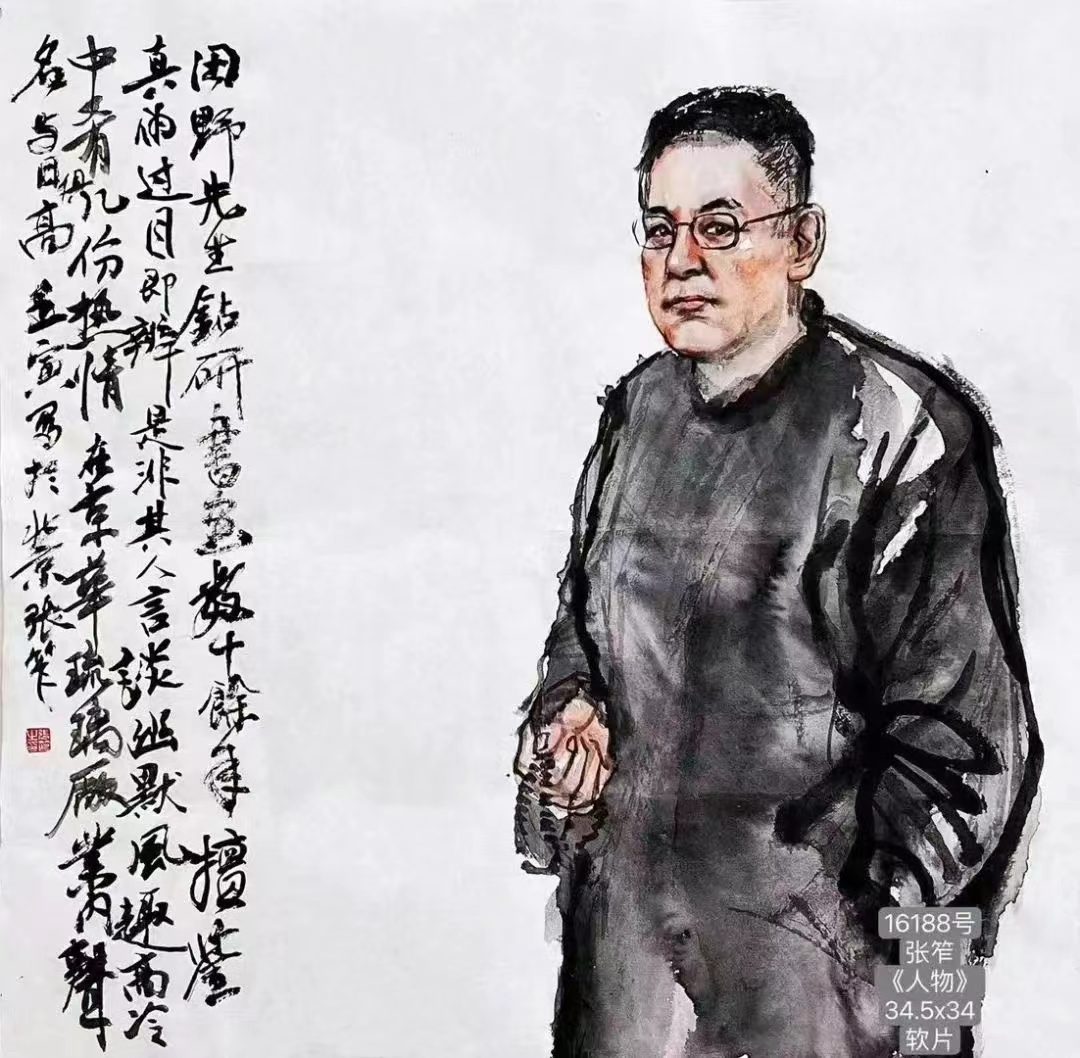 田野先生鉆研書画数十餘年擅鉴
真偽过目即辨是非其人言談幽默風趣高冷
中有几份热情在京華琉璃廠業内聲
名与日俱高壬寅写於北京张笮
16188号
张笮
《人物》
34.5x34
软片